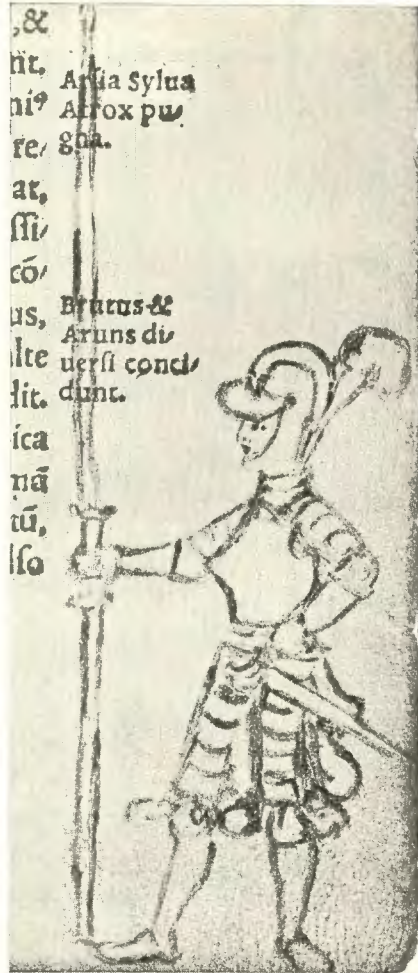 ,&
nit.
ni⁹
re/
at,
ssi/
cō/
us,
lte
dit.
ica
nā
tū,
lso
Arsia Sylua
Atrox pu/
gna.
Brutus &
Aruns di/
uersi conci/
dunt.